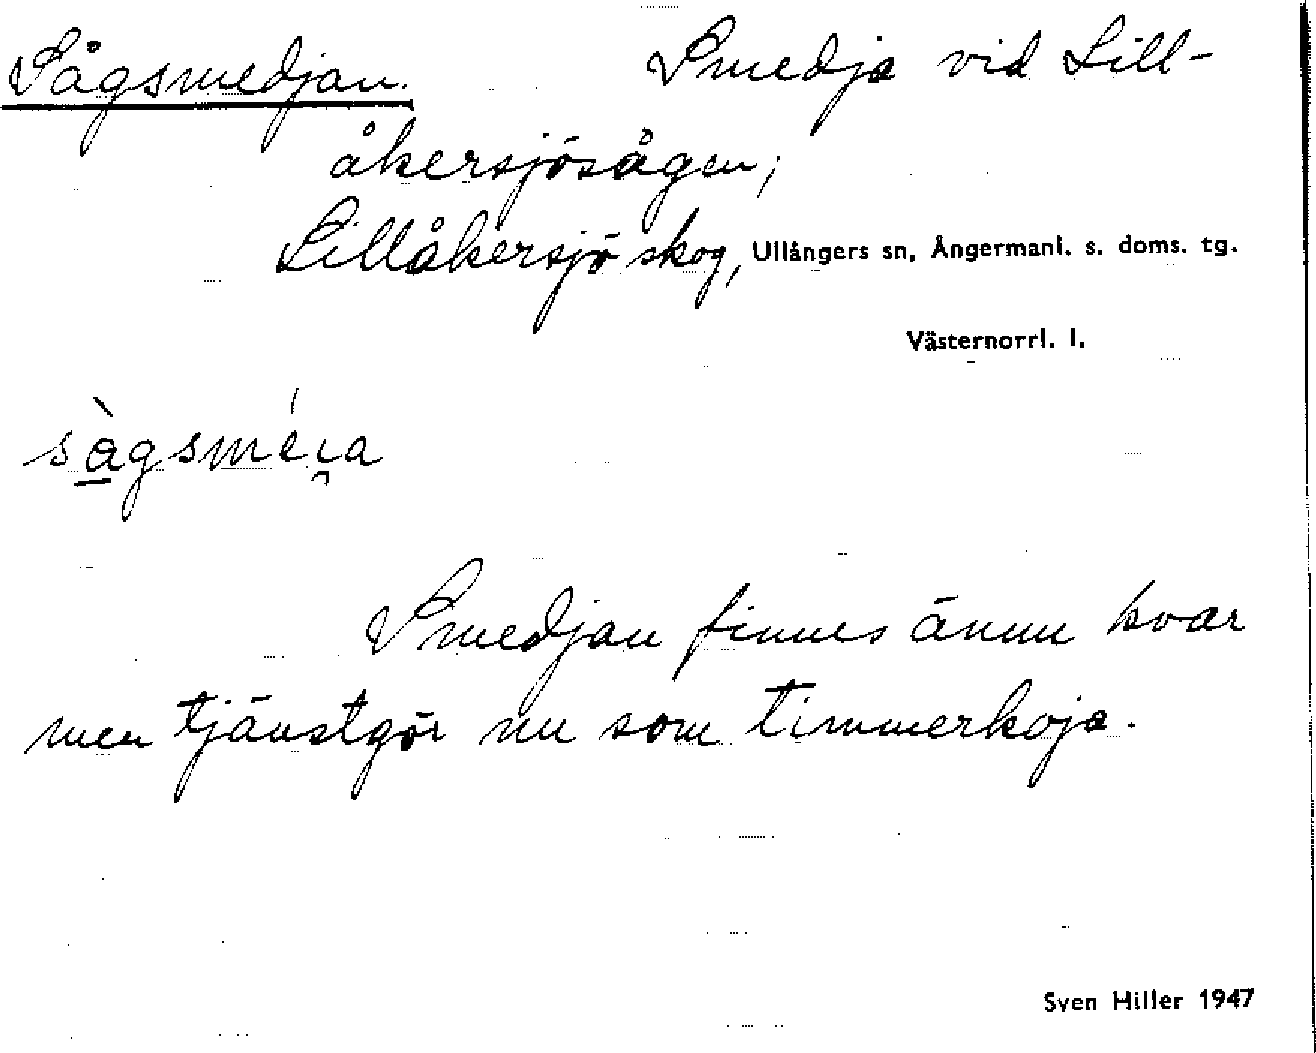 Sågsmedjan. Smedja vid Lill-
åkersjösågen;
Lillåkersjö skog, Ullångers sn, Ångermanl. s. doms. tg.
Västernorrl. l.
sà̱gsméi̯a
Smedjan finnes ännu kvar
men tjänstgör nu som timmerkoja.
Sven Hiller 1947